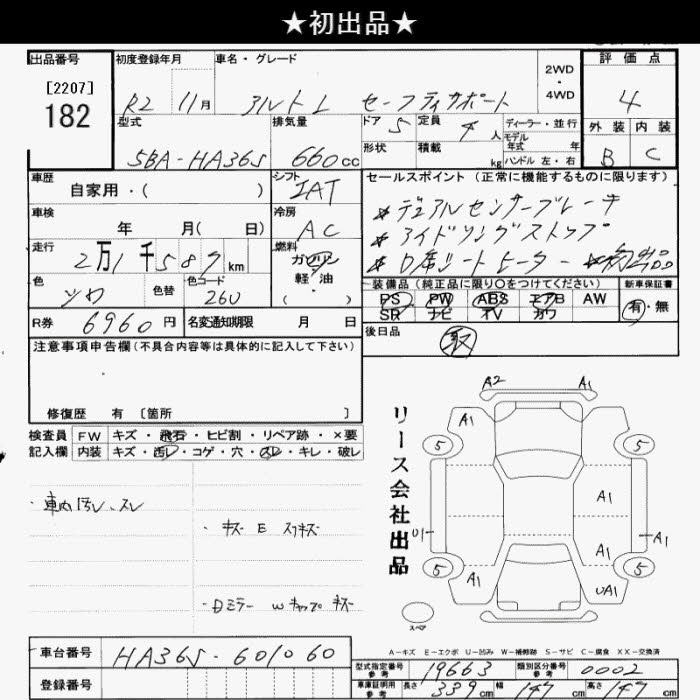 ★初出品★
出品番号
[2207]
182
初度登録年月
R2 11月
車名・グレード
アルト L セーフティサポート
2WD
・
4WD
評価点
4
外装 内装
B C
型式
5BA-HA36S
排気量
660cc
ドア 5
定員 4人
形状
積載 kg
ディーラー・並行
モデル
年式 年
ハンドル 左・右
車歴
自家用・( )
シフト
IAT
車検
年 月( 日)
冷房
AC
走行
2万1千587km
燃料
ガソリン
軽油
( ・ )
色
シロ
色替
色コード
26U
R券 6960円
名変通知期限 月 日
セールスポイント (正常に機能するものに限ります)
* デュアルセンサーブレーキ
* アイドリングストップ
* D席シートヒーター *初出品
装備品(純正品に限り○をつけてください)
PS PW ABS エアB AW
SR ナビ TV カワ
新車保証書
有・無
後日品
取
注意事項申告欄(不具合内容等は具体的に記入して下さい)
修復歴 有 [箇所 ]
検査員
記入欄
FW キズ・飛石・ヒビ割・リペア跡・×要
内装 キズ・凹・コゲ・穴・スレ・キレ・破レ
・車内汚レ、スレ
・キズ E スリキズ
・Dミラー Wキャップ キズ
リース会社出品
A2 A1
A1
5 5
A1
A1
A1
A1
5 5
A1 UA1
スペア
A-キズ E-エクボ U-凹み W-補修跡 S-サビ C-腐食 XX-交換済
車台番号 HA36S-601060
登録番号
型式指定番号
参考
19663
類別区分番号
参考
0002
車庫証明用
参考
長さ 339cm
幅 147cm
高さ 157cm